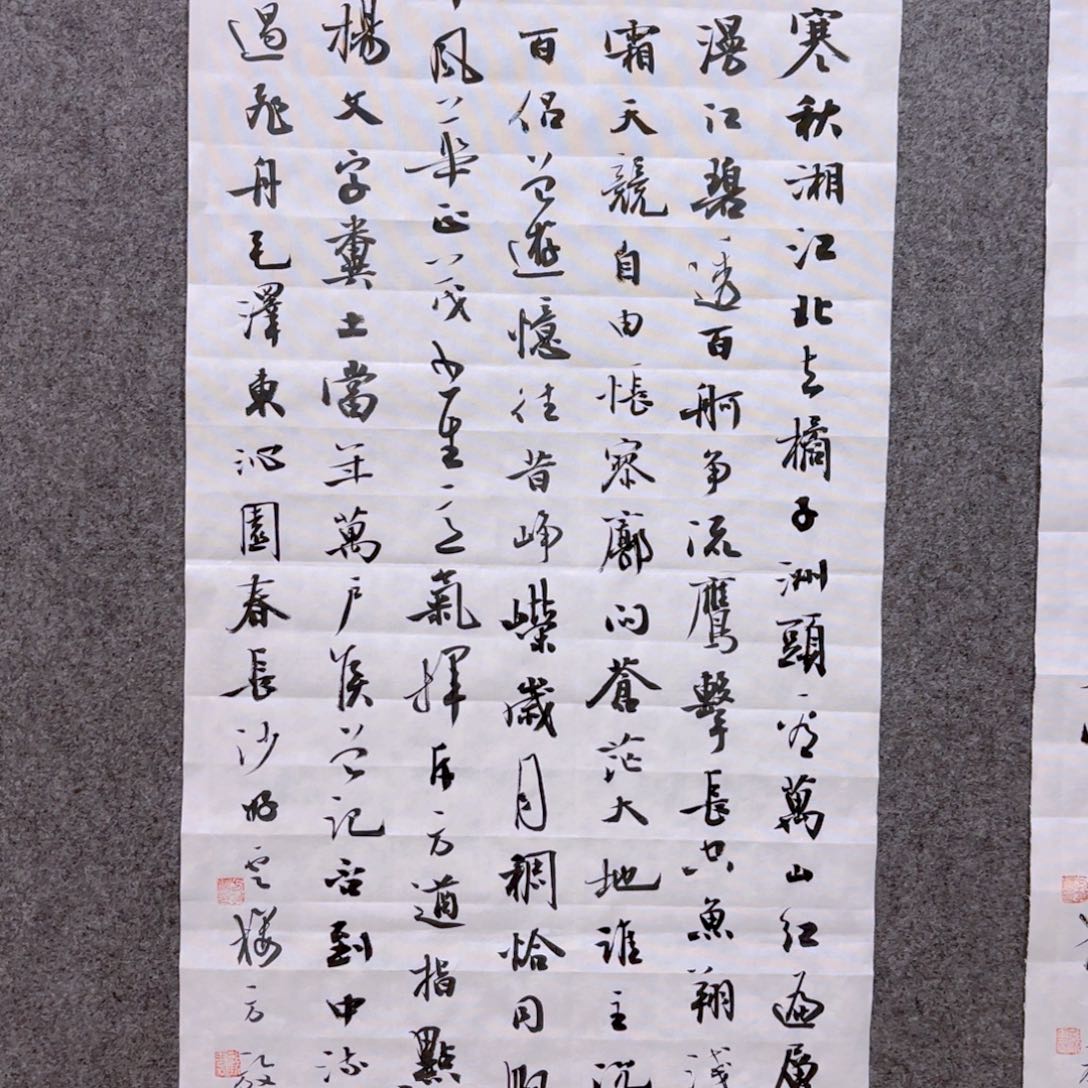 寒秋湘江北去橘子洲頭看萬山紅遍層
漫江碧透百舸争流鷹擊長空魚翔淺
霜天競自由悵寥廓問蒼茫大地誰主沉
百侣曾遊憶往昔崢嶸歲月稠恰同
風華正茂書生意氣揮斥方遒指點
楊文字糞土當年萬戶侯曾記否到中流
遏飛舟毛澤東沁園春長沙